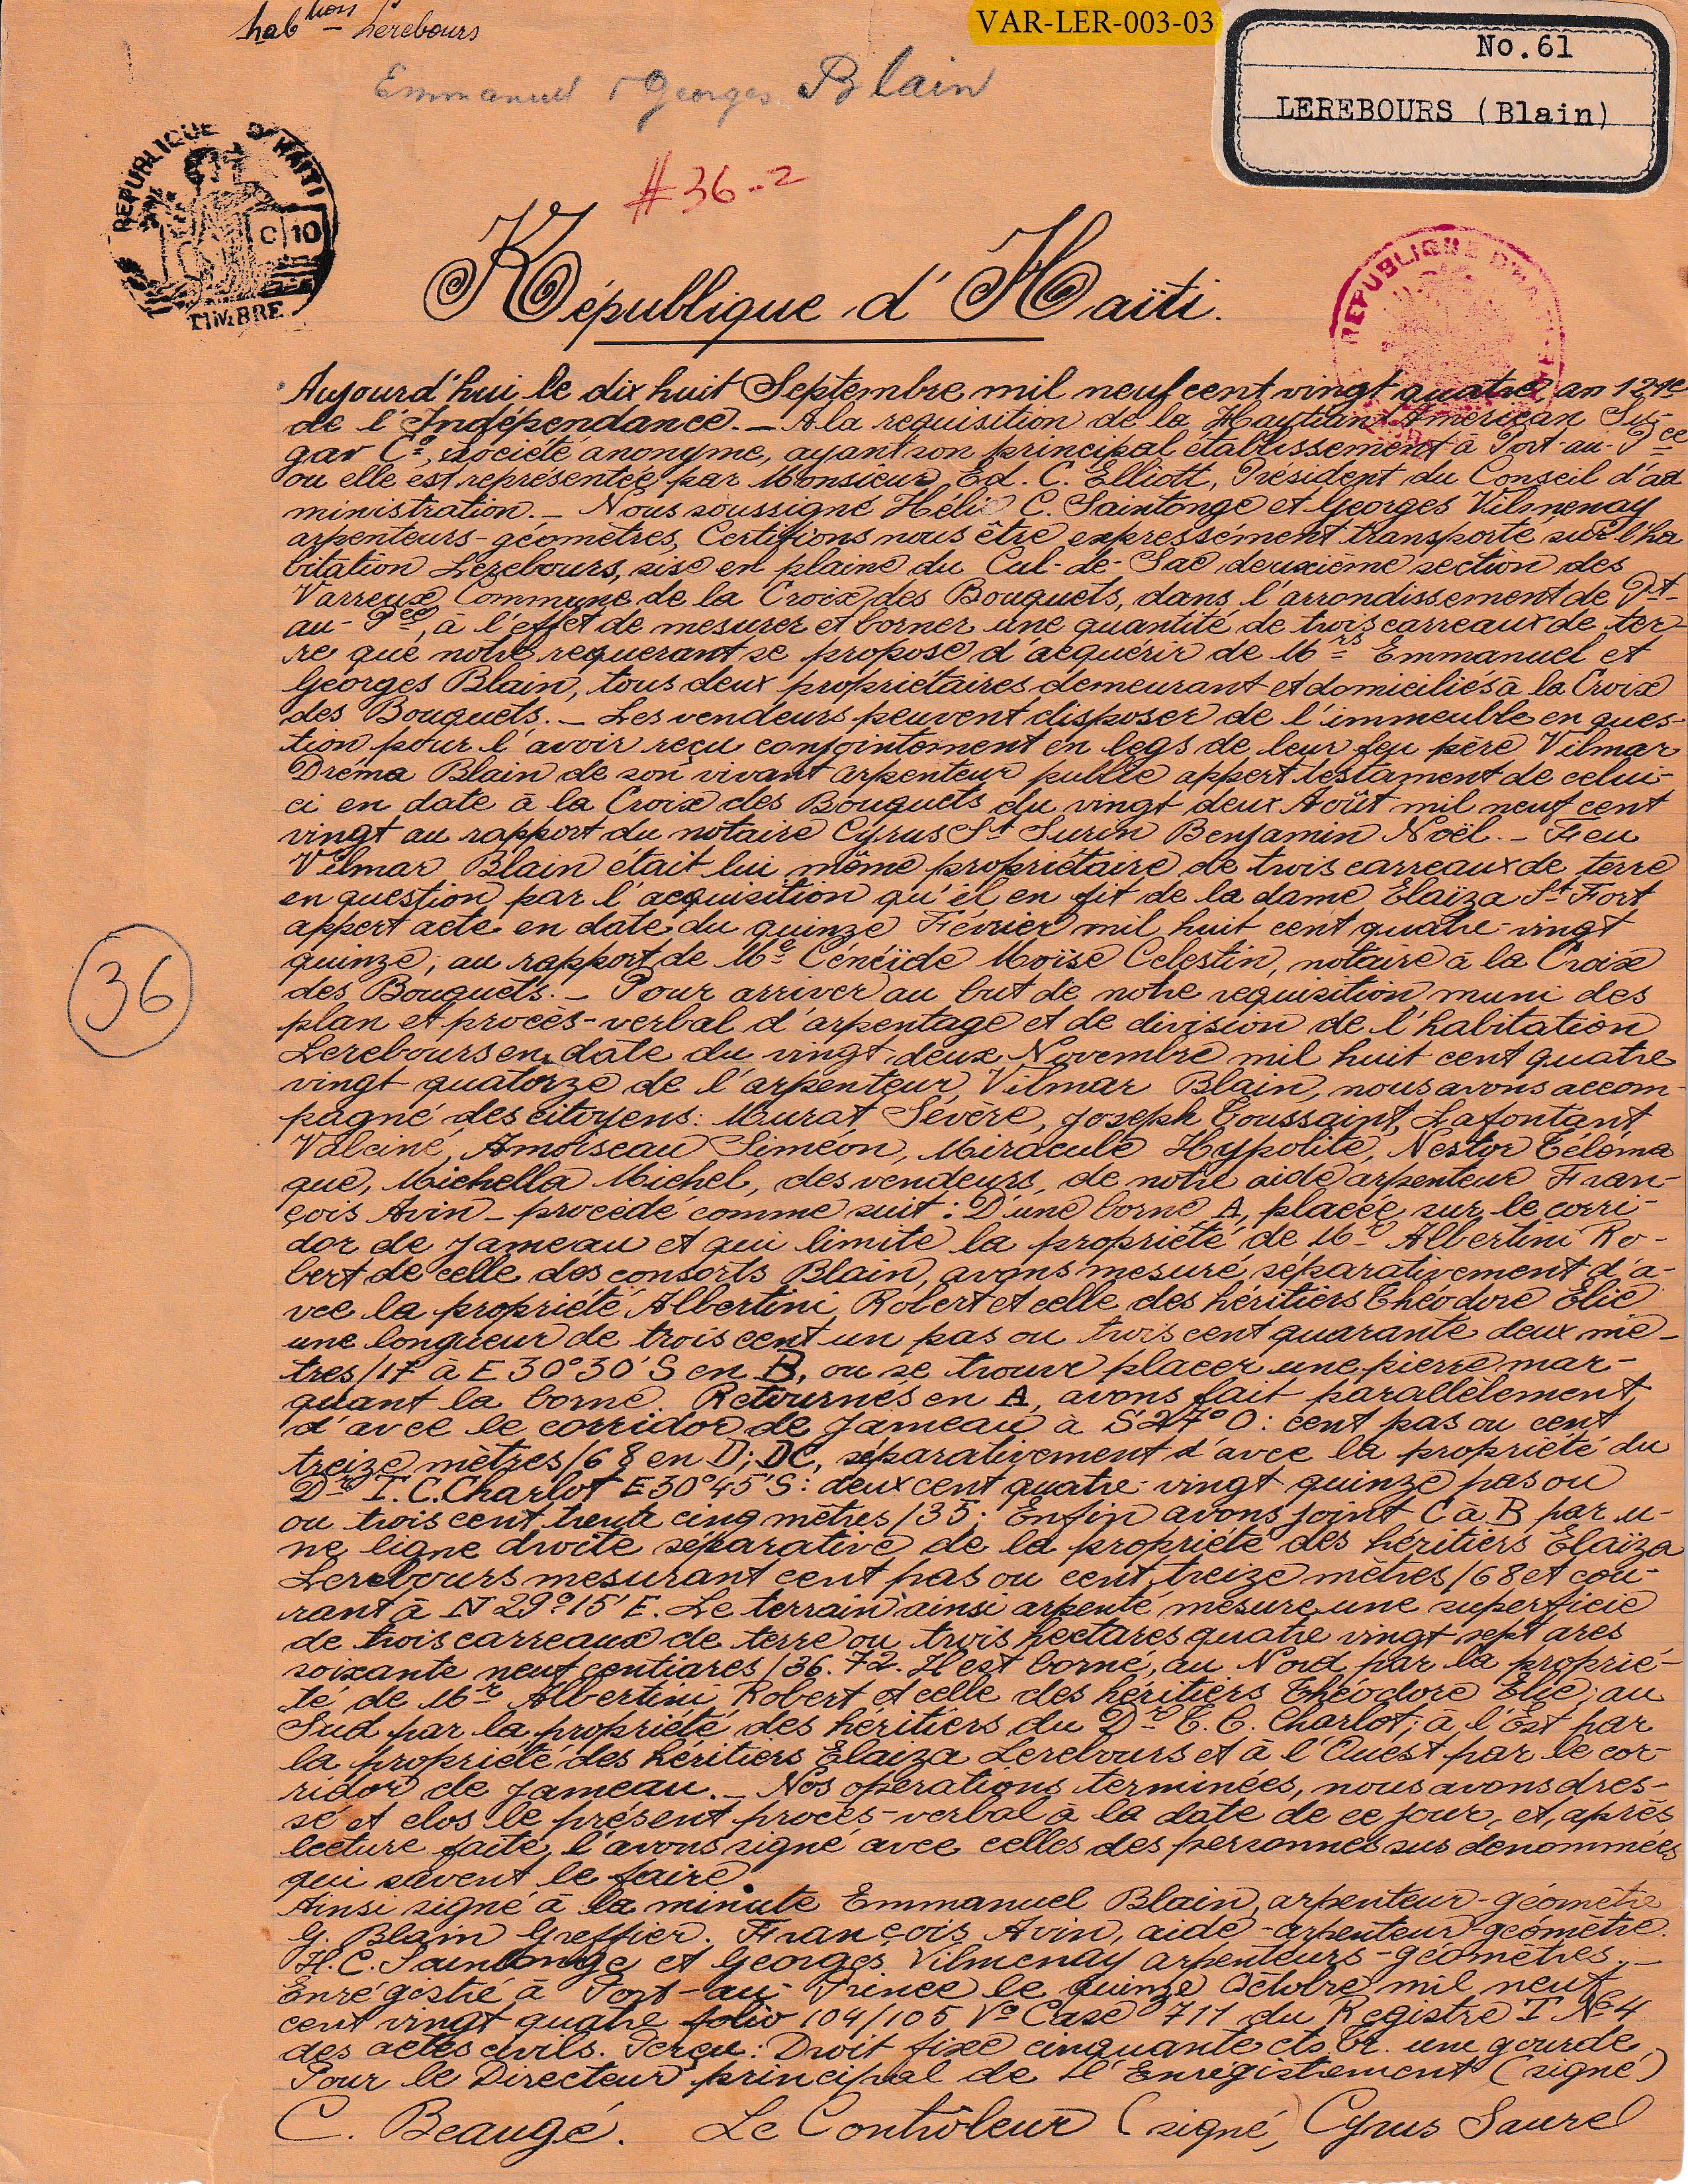 habtions Lerebours
VAR-LER-003-03
No.61
LEREBOURS (Blain)
Emmanuel & Georges Blain
#36-2
REPUBLIQUE D'HAITI
C 10
TIMBRE
REPUBLIQUE D'HAITI
République d'Haïti.
Aujourd'hui le dix huit Septembre mil neuf cent vingt quatre, an 121e
de l'Indépendance. _ A la requisition de la Haytian American Su-
gar Co, Société anonyme, ayant son principal établissement à Port-au-Pce
ou elle est représentée par Monsieur Ed. C. Elliott, Président du Conseil d'ad
ministration. _ Nous soussigné Hélie C. Saintonge et Georges Vilmenay
arpenteurs-géomètres, Certifions nous être expressément transporté sur l'ha
bitation Lerebours, sise en plaine du Cul-de-Sac deuxième section des
Varreux Commune de la Croix des Bouquets, dans l'arrondissement de Pt-
au-Pce, à l'effet de mesurer et borner une quantité de trois carreaux de ter-
re que notre requerant se propose d'acquérir de Mrs Emmanuel et
Georges Blain, tous deux propriétaires demeurant et domiciliés à la Croix
des Bouquets. _ Les vendeurs peuvent disposer de l'immeuble en ques-
tion pour l'avoir reçu conjointement en legs de leur feu père Vilmar
Dréma Blain de son vivant arpenteur public appert testament de celui-
ci en date à la Croix des Bouquets du vingt deux Août mil neuf cent
vingt au rapport du notaire Cyrus St Surin Benjamin Noël. _ Feu
Vilmar Blain était lui même propriétaire de trois carreaux de terre
en question par l'acquisition qu'il en fit de la dame Elaïza St Fort
appert acte en date du quinze Février mil huit cent quatre-vingt
quinze, au rapport de Me Cénéide Moïse Celestin, notaire à la Croix
des Bouquets. _ Pour arriver au but de notre requisition muni des
plan et procès-verbal d'arpentage et de division de l'habitation
Lerebours en date du vingt deux Novembre mil huit cent quatre
vingt quatorze de l'arpenteur Vilmar Blain, nous avons accom-
pagné des citoyens: Murat Sévère, Joseph Toussaint, Lafontant
Valciné, Amoiseau Siméon, Miracule Hypolite, Nestor Téléma
que, Michella Michel, des vendeurs, de notre aide arpenteur Fran-
çois Avin _ procédé comme suit: D'une borne A, placée sur le corri-
dor de Jameau et qui limite la propriété de Mr Albertini Ro-
bert de celle des consorts Blain, avons mesuré séparativement d'a-
vec la propriété Albertini Robert et celle des héritiers Théodore Elie
une longueur de trois cent un pas ou trois cent quarante deux mè-
tres/17 à E 30°30'S en B, ou se trouve placer une pierre mar-
quant la borne. Retournés en A, avons fait parallèlement
d'avec le corridor de Jameau à S 27° O: cent pas ou cent
treize mètres/68 en D; DC, séparativement d'avec la propriété du
Dr T. C. Charlot E 30°45'S: deux cent quatre-vingt quinze pas ou
ou trois cent trente cinq mètres/35; Enfin avons joint C à B par u-
ne ligne droite séparative de la propriété des héritiers Elaïza
Lerebours mesurant cent pas ou cent treize mètres/68 et cou-
rant à N 29°15'E. Le terrain ainsi arpenté mesure une superficie
de trois carreaux de terre ou trois hectares quatre vingt sept ares
soixante neuf centiares/36.72. Il est borné, au Nord par la proprié-
té de Mr Albertini Robert et celle des héritiers Théodore Elie; au
Sud par la propriété des héritiers du Dr T. C. Charlot; à l'Est par
la propriété des héritiers Elaiza Lerebours et à l'Ouest par le cor-
ridor de Jameau. _ Nos opérations terminées, nous avons dres-
sé et clos le présent procès-verbal à la date de ce jour, et, après
lecture faite, l'avons signé avec celles des personnes sus dénommées
qui savent le faire.
Ainsi signé à la minute Emmanuel Blain, arpenteur-géomètre
G. Blain Greffier. François Avin, aide-arpenteur-géomètre.
H. C. Saintonge et Georges Vilmenay arpenteurs-géomètres. _
Enrégistré à Port-au-Prince le quinze Octobre mil neuf
cent vingt quatre folio 104/105 Vo Case 711 du Registre I No 4
des actes civils. Perçu: Droit fixe cinquante cts Or. une gourde,
Pour le Directeur principal de l'Enregistrement (signé)
C. Beaugé. Le Contrôleur (signé, Cyrus Saurel
36